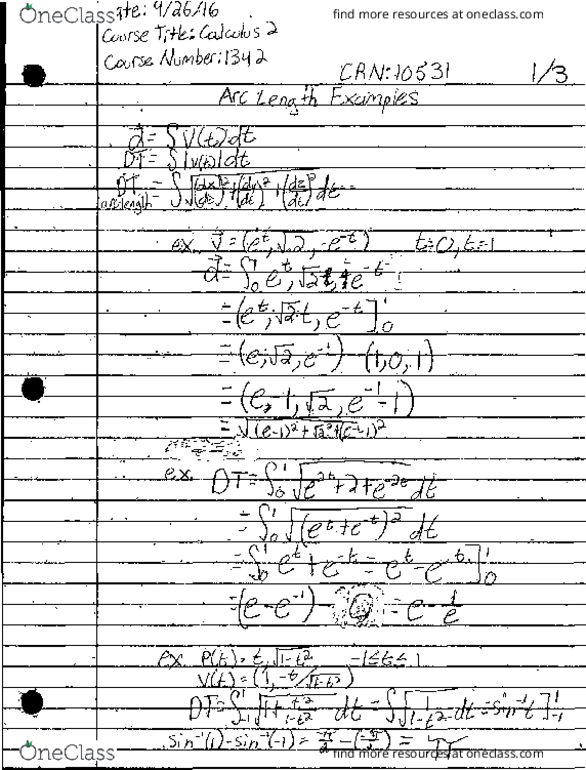 OneClass
find more resources at oneclass.com
ate: 4/26/16
Course Title: Calculus 2
Course Number: 1342
CRN: 10531 1/3
Arc Length Examples
d⃗ = ∫ V(t) dt
DT = ∫ |v(t)| dt
DT arc length = ∫ √((dx/dt)² + (dy/dt)² + (dz/dt)²) dt
ex. v⃗ = (e^t, √2, -e^-t) t=0, t=1
d⃗ = ∫₀¹ e^t, √2, -e^-t
= (e^t, √2 t, e^-t]₀¹
= (e, √2, e^-1) - (1, 0, 1)
= (e-1, √2, e^-1 - 1)
= √((e-1)² + √2² + (e^-1 - 1)²
ex. DT = ∫₀¹ √(e^2t + 2 + e^-2t) dt
= ∫₀¹ √((e^t + e^-t)²) dt
= ∫₀¹ e^t + e^-t = e^t - e^-t]₀¹
= (e - e^-1) - 0 = e - 1/e
ex. P(t) = t, √(1-t²) -1 ≤ t ≤ 1
V(t) = (1, -t/√(1-t²))
DT = ∫₋₁¹ √(1 + t²/(1-t²)) dt = ∫ √(1/(1-t²)) dt = sin⁻¹ t]₋₁¹
sin⁻¹(1) - sin⁻¹(-1) = π/2 - (-π/2) = π
OneClass
find more resources at oneclass.com